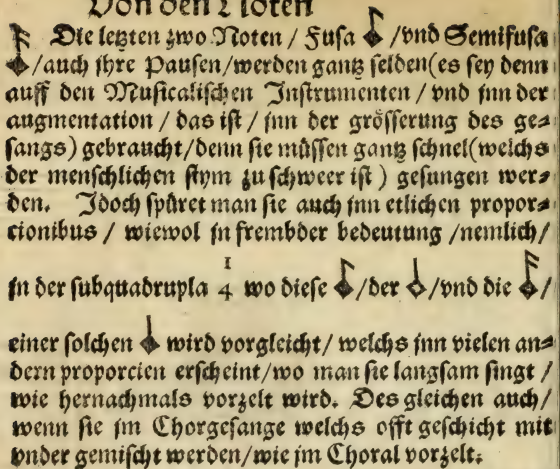 Von den Noten
Die letzten zwo Noten / Fusa /vnd Semifusa
/auch jhre Pausen/werden gantz selden(es sey denn
auff den Musicalischen Instrumenten / vnd jnn der
augmentation / das ist / jnn der grösserung des ge⸗
sangs) gebraucht/denn sie müssen gantz schnel(welchs
der menschlichen stym zu schweer ist) gesungen wer⸗
den. Jdoch spüret man sie auch jnn etlichen propor⸗
cionibus / wiewol jn frembder bedeutung /nemlich/
jn der subquadrupla 1/4 wo diese /der /vnd die /
einer solchen wird vorgleicht/ welchs jnn vielen an⸗
dern proporcien erscheint/wo man sie langsam singt /
wie hernachmals vorzelt wird. Des gleichen auch/
wenn sie jm Chorgesange welchs offt geschicht mit
vnder gemischt werden/wie jm Choral vorzelt.